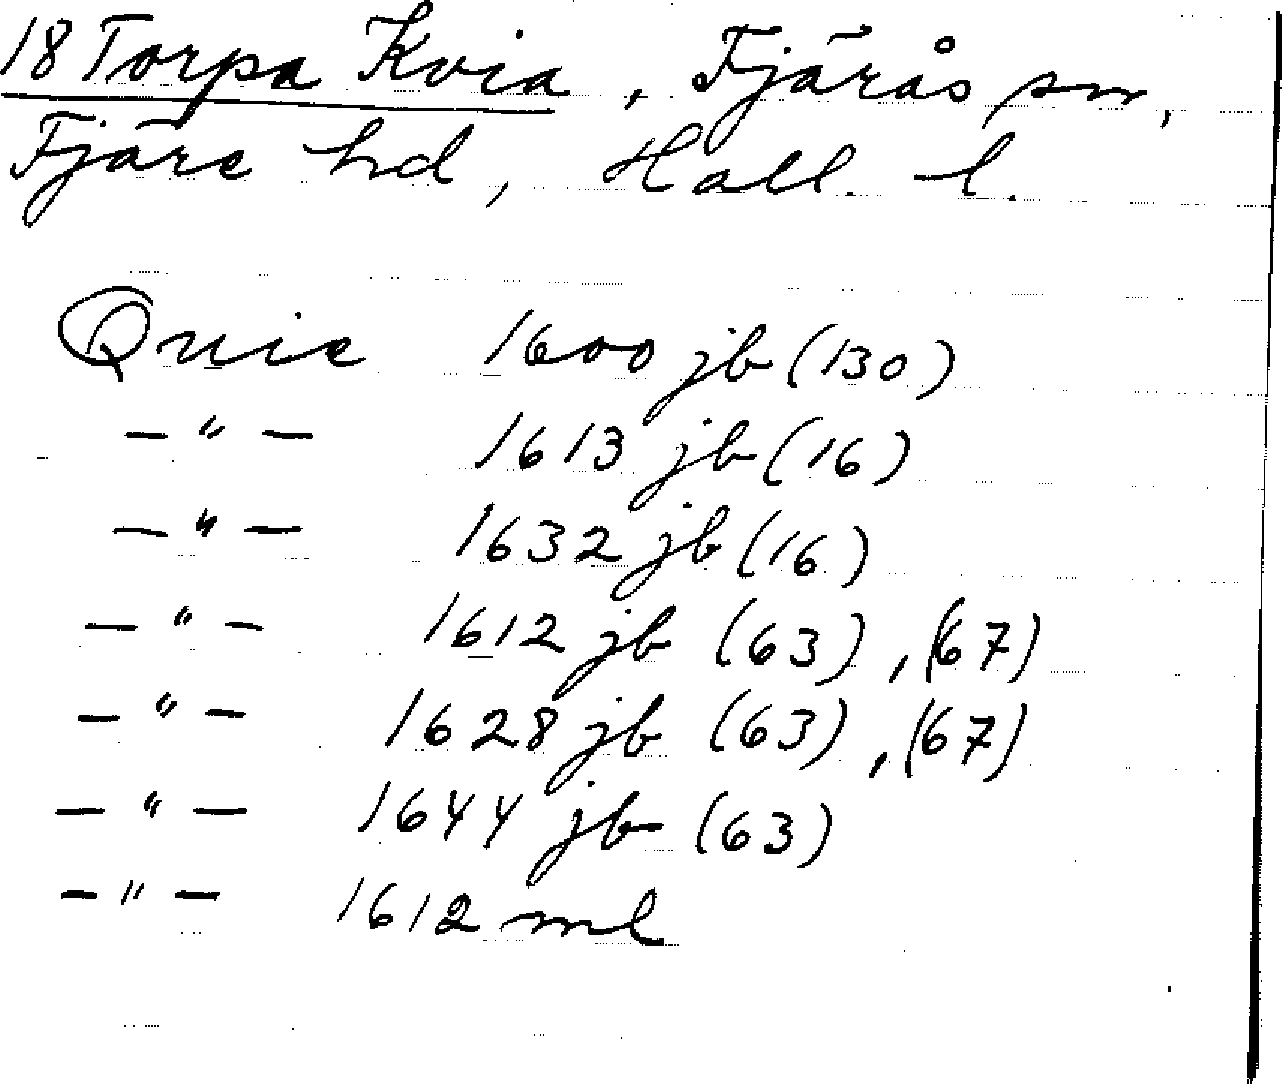 18 Torpa Kvia, Fjärås sn,
Fjäre hd, Hall. l.
Quie 1600 jb (130)
— " — 1613 jb (16)
— " — 1632 jb (16)
— " — 1612 jb (63), (67)
— " — 1628 jb (63), (67)
— " — 1644 jb (63)
— " — 1612 ml